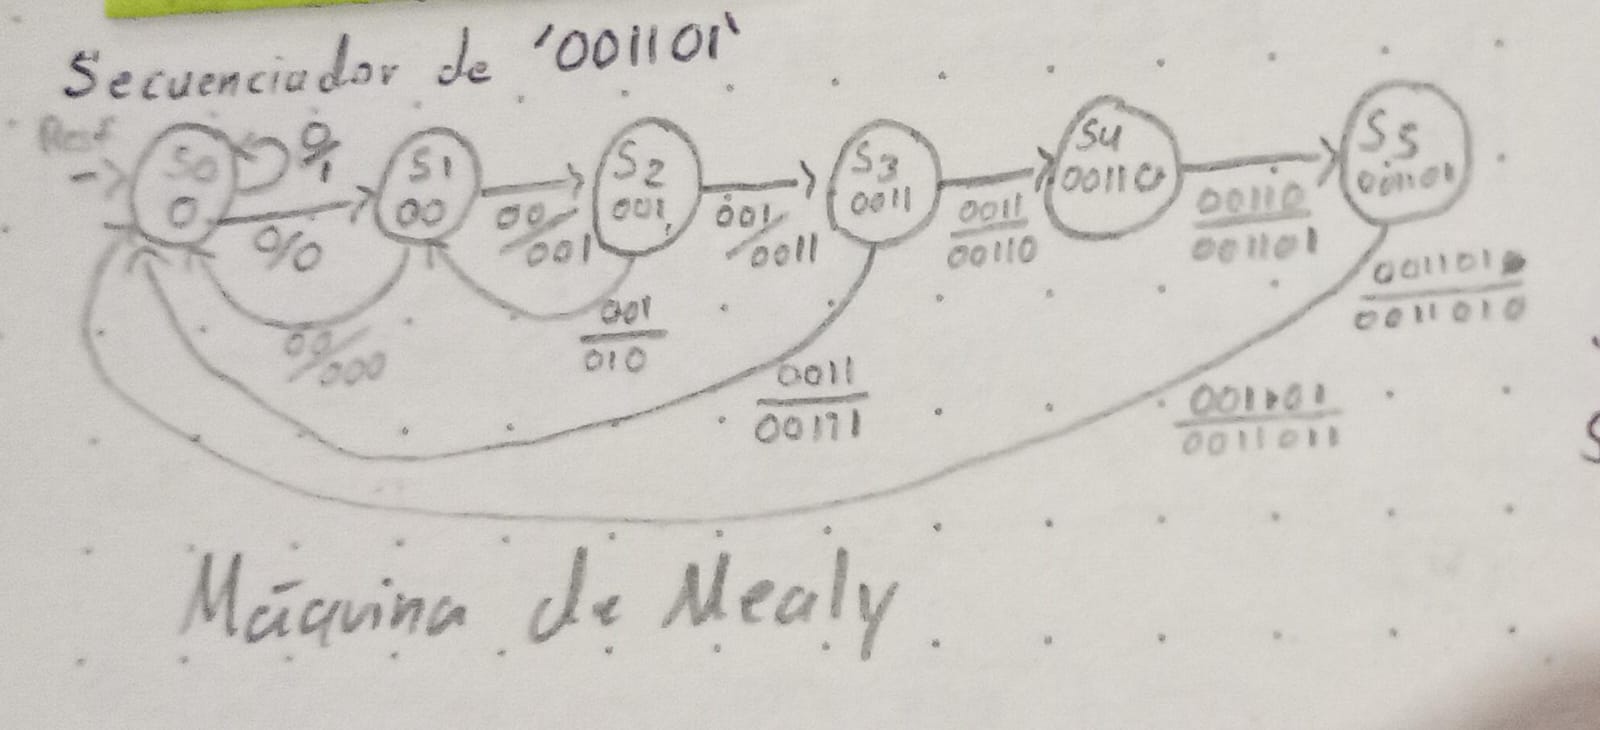 Secuenciador de '001101'
Reset
S0
0
0/1
0/0
S1
00
00/001
00/000
S2
001
001/0011
001
010
S3
0011
0011
00110
0011
00111
S4
00110
00110
001101
S5
001101
001101
0011010
001101
0011011
Máquina de Mealy